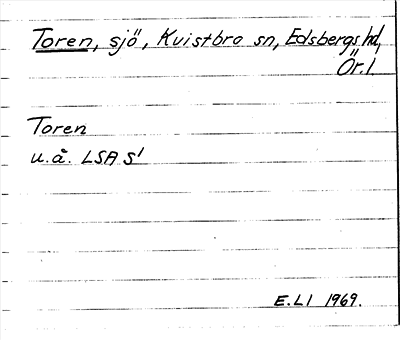 Toren, sjö, Kvistbro sn, Edsbergs hd,
Ör. l.
Toren
u.å. LSA S1
E.LI 1969.